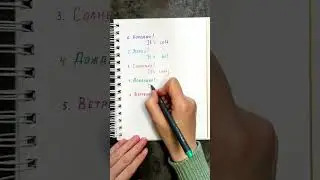 3. Солн
4. Дожд
5. Ветр
1. Холодно!
It's cold
2. Жарко!
It's hot
3. Солнечно!
It's sunny
4. Дождливо!